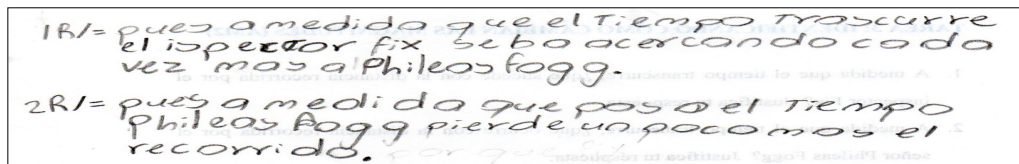 1R/= pues a medida que el Tiempo Trascurre
el ispector fix se ba acercando cada
vez mas a Phileas fogg.
2R/= pues a medida que pasa el Tiempo
phileas fogg pierde un poco mas el
recorrido.